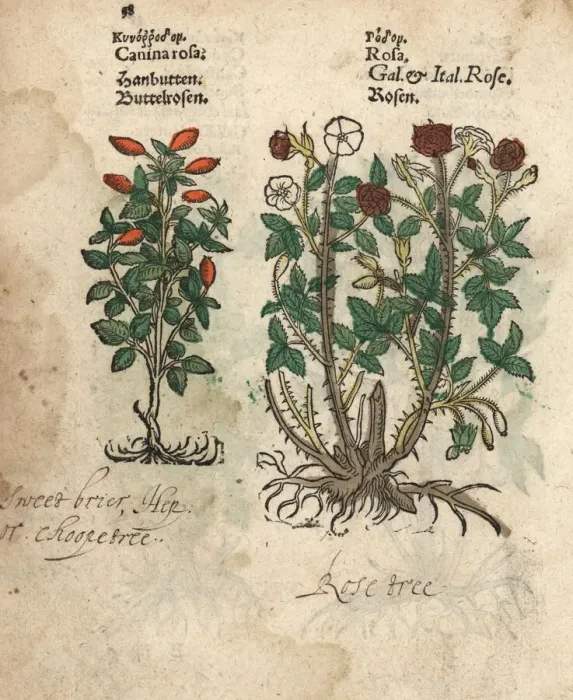 98
Κυνόῤῥοδον.
Canina rosa:
Hanbutten.
Buttelrosen.
Ῥόδον.
Rosa.
Gal. & Ital. Rose.
Rosen.
Sweet brier, Hep
or Choope tree.
Rose tree